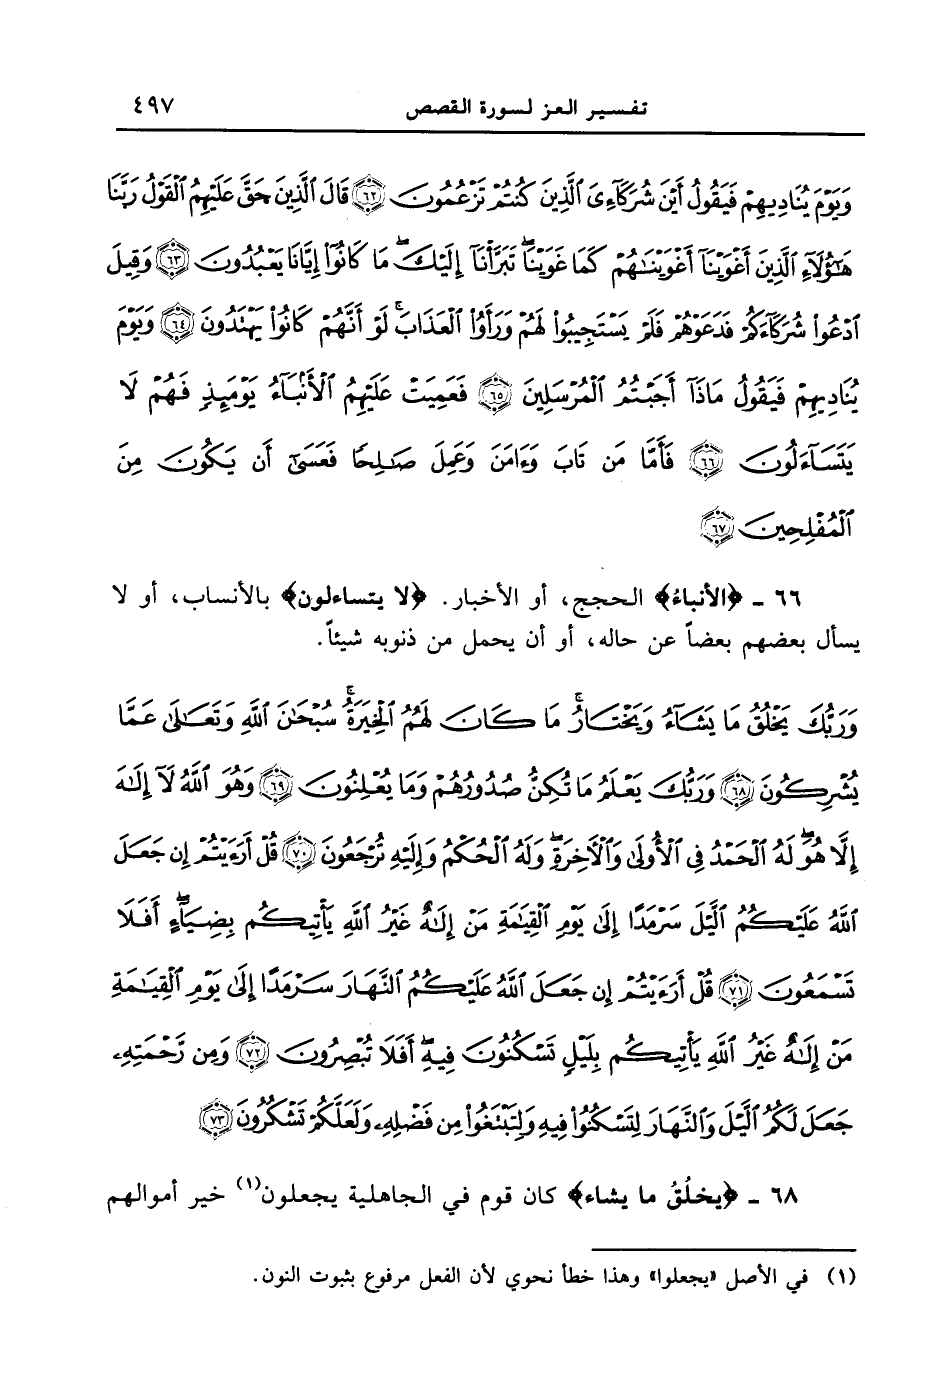 تفسير العز لسورة القصص ٤٩٧
وَيَوْمَ يُنَادِيهِمْ فَيَقُولُ أَيْنَ شُرَكَآءِىَ ٱلَّذِينَ كُنتُمْ تَزْعُمُونَ ﴿٦٢﴾ قَالَ ٱلَّذِينَ حَقَّ عَلَيْهِمُ ٱلْقَوْلُ رَبَّنَا
هَٰٓؤُلَآءِ ٱلَّذِينَ أَغْوَيْنَآ أَغْوَيْنَٰهُمْ كَمَا غَوَيْنَا ۖ تَبَرَّأْنَآ إِلَيْكَ ۖ مَا كَانُوٓا۟ إِيَّانَا يَعْبُدُونَ ﴿٦٣﴾ وَقِيلَ
ٱدْعُوا۟ شُرَكَآءَكُمْ فَدَعَوْهُمْ فَلَمْ يَسْتَجِيبُوا۟ لَهُمْ وَرَأَوُا۟ ٱلْعَذَابَ ۚ لَوْ أَنَّهُمْ كَانُوا۟ يَهْتَدُونَ ﴿٦٤﴾ وَيَوْمَ
يُنَادِيهِمْ فَيَقُولُ مَاذَآ أَجَبْتُمُ ٱلْمُرْسَلِينَ ﴿٦٥﴾ فَعَمِيَتْ عَلَيْهِمُ ٱلْأَنۢبَآءُ يَوْمَئِذٍ فَهُمْ لَا
يَتَسَآءَلُونَ ﴿٦٦﴾ فَأَمَّا مَن تَابَ وَءَامَنَ وَعَمِلَ صَٰلِحًا فَعَسَىٰٓ أَن يَكُونَ مِنَ
ٱلْمُفْلِحِينَ ﴿٦٧﴾
٦٦ ـ ﴿الأنباءُ﴾ الحجج، أو الأخبار. ﴿لا يتساءلون﴾ بالأنساب، أو لا
يسأل بعضهم بعضاً عن حاله، أو أن يحمل من ذنوبه شيئاً.
وَرَبُّكَ يَخْلُقُ مَا يَشَآءُ وَيَخْتَارُ ۗ مَا كَانَ لَهُمُ ٱلْخِيَرَةُ ۚ سُبْحَٰنَ ٱللَّهِ وَتَعَٰلَىٰ عَمَّا
يُشْرِكُونَ ﴿٦٨﴾ وَرَبُّكَ يَعْلَمُ مَا تُكِنُّ صُدُورُهُمْ وَمَا يُعْلِنُونَ ﴿٦٩﴾ وَهُوَ ٱللَّهُ لَآ إِلَٰهَ
إِلَّا هُوَ ۖ لَهُ ٱلْحَمْدُ فِى ٱلْأُولَىٰ وَٱلْءَاخِرَةِ ۖ وَلَهُ ٱلْحُكْمُ وَإِلَيْهِ تُرْجَعُونَ ﴿٧٠﴾ قُلْ أَرَءَيْتُمْ إِن جَعَلَ
ٱللَّهُ عَلَيْكُمُ ٱلَّيْلَ سَرْمَدًا إِلَىٰ يَوْمِ ٱلْقِيَٰمَةِ مَنْ إِلَٰهٌ غَيْرُ ٱللَّهِ يَأْتِيكُم بِضِيَآءٍ ۖ أَفَلَا
تَسْمَعُونَ ﴿٧١﴾ قُلْ أَرَءَيْتُمْ إِن جَعَلَ ٱللَّهُ عَلَيْكُمُ ٱلنَّهَارَ سَرْمَدًا إِلَىٰ يَوْمِ ٱلْقِيَٰمَةِ
مَنْ إِلَٰهٌ غَيْرُ ٱللَّهِ يَأْتِيكُم بِلَيْلٍ تَسْكُنُونَ فِيهِ ۖ أَفَلَا تُبْصِرُونَ ﴿٧٢﴾ وَمِن رَّحْمَتِهِۦ
جَعَلَ لَكُمُ ٱلَّيْلَ وَٱلنَّهَارَ لِتَسْكُنُوا۟ فِيهِ وَلِتَبْتَغُوا۟ مِن فَضْلِهِۦ وَلَعَلَّكُمْ تَشْكُرُونَ ﴿٧٣﴾
٦٨ ـ ﴿يخلُقُ ما يشاء﴾ كان قوم في الجاهلية يجعلون(١) خير أموالهم
(١) في الأصل «يجعلوا» وهذا خطأ نحوي لأن الفعل مرفوع بثبوت النون.